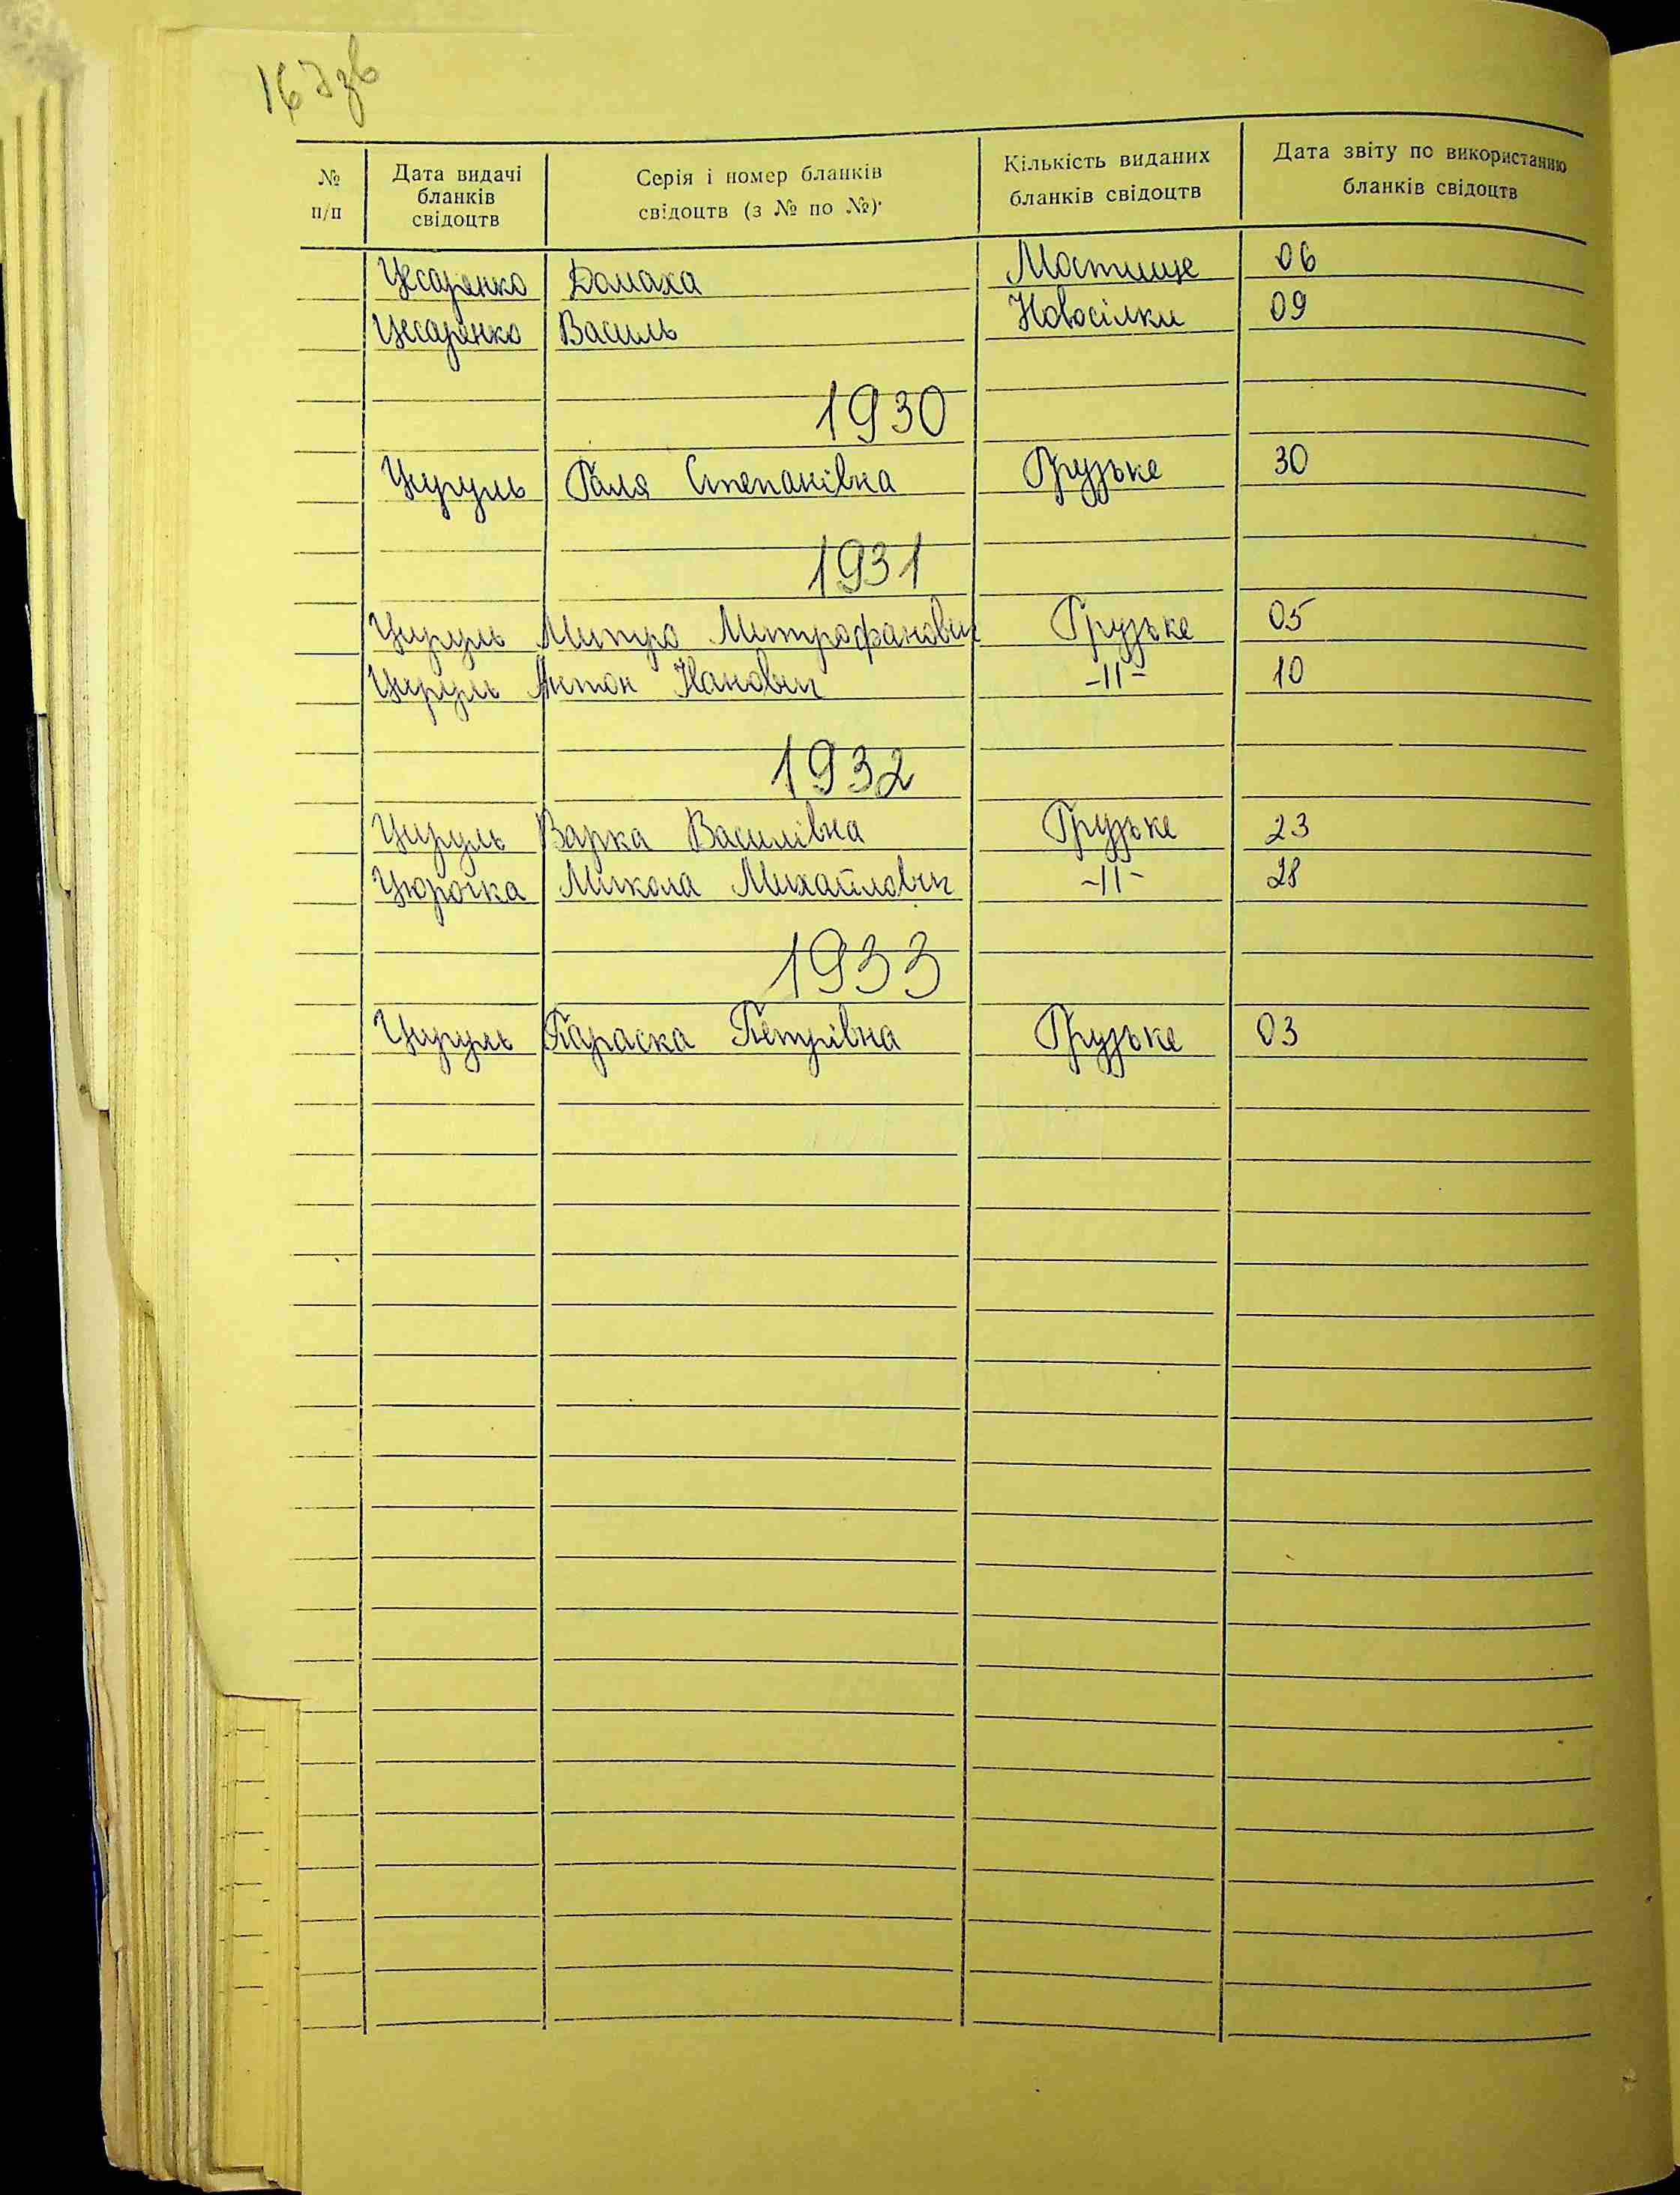 167зв
№ п/п Дата видачі бланків свідоцтв Серія і номер бланків свідоцтв (з № по №) Кількість виданих бланків свідоцтв Дата звіту по використанню бланків свідоцтв
Цесаренко Домаха Мостище 06
Цесаренко Василь Новосілки 09
1930
Цируль Галя Степанівна Грузьке 30
1931
Цируль Митро Митрофанович Грузьке 05
Цируль Антон Іванович -11- 10
1932
Цируль Варка Василівна Грузьке 23
Цюрочка Микола Михайлович -11- 28
1933
Цируль Параска Петрівна Грузьке 03